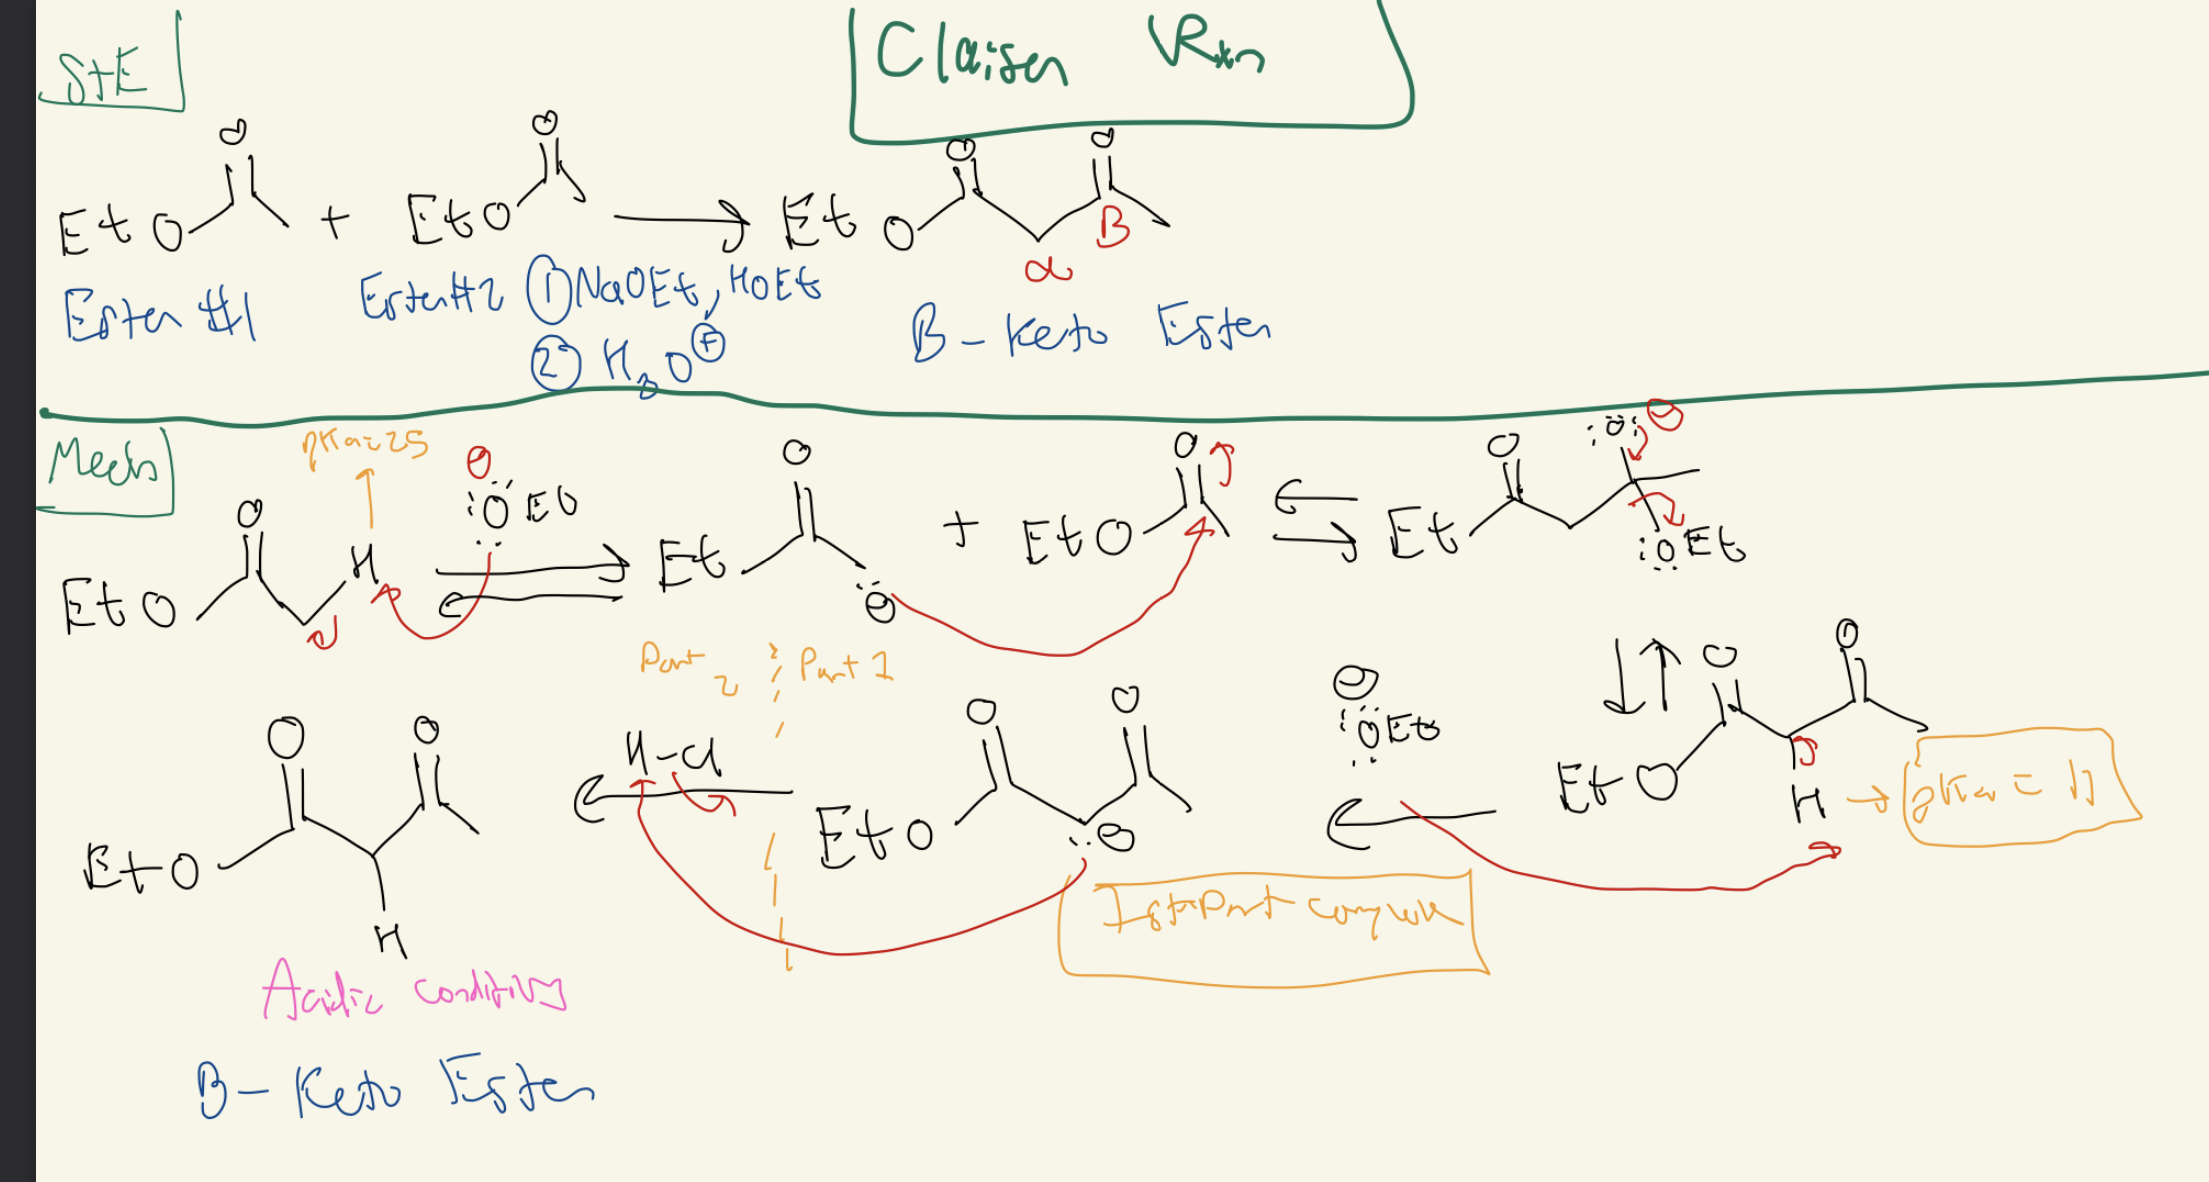 StE
Claisen Rxn
O
O
O
O
EtO + EtO → EtO
B
α
Ester #1
Ester #2
① NaOEt, HOEt
② H3O⊕
B-Keto Ester
Mech
pKa=25
⊖
:Ö Et
O
EtO
H
O
Et
⊖
+
O
EtO
O
Et
:Ö: ⊖
:ÖEt
Part 2
Part 1
O
O
EtO
H
H-Cl
O
O
EtO
:⊖
⊖
:ÖEt
O
O
EtO
H → pKa = 11
1st Part
Acidic conditions
B-Keto Ester